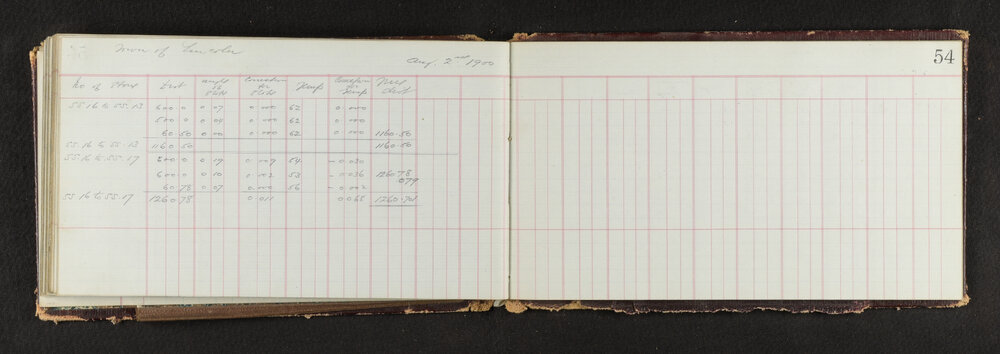 Town of Lincoln
Aug. 2nd 1900
54
No of Stone Dist angle of Slope Correction for Slope Temp Correction for Temp True dist
55.16 to 55.13 600.0 0.07 0.000 62 0.000
500.0 0.04 0.000 62 0.000
60.50 0.00 0.000 62 1160.50
55.16 to 55.13 1160.50 1160.50
55.16 to 55.17 600.0 0.19 0.009 54 -0.030
600.0 0.10 0.002 53 -0.036 1260.78
60.78 0.07 0.000 56 -0.002 .079
55.16 to 55.17 1260.78 0.011 0.068 1260.701